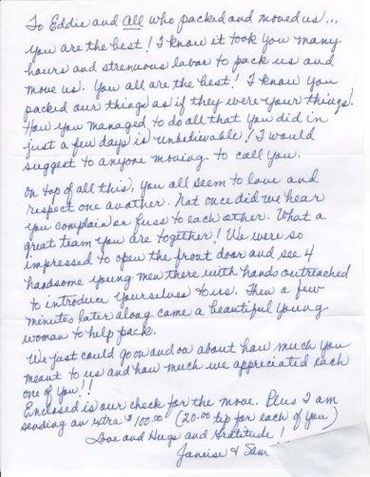 To Eddie and All who packed and moved us...
you are the best! I know it took you many
hours and strenuous labor to pack us and
move us. You all are the best! I know you
packed our things as if they were your things!
How you managed to do all that you did in
just a few days is unbelievable! I would
suggest to anyone moving to call you.
On top of all this, you all seem to love and
respect one another. Not once did we hear
you complain or fuss to each other. What a
great team you are together! We were so
impressed to open the front door and see 4
handsome young men there with hands outreached
to introduce yourselves to us. Then a few
minutes later along came a beautiful young
woman to help pack.
We just could go on and on about how much you
meant to us and how much we appreciated each
one of you!!
Enclosed is our check for the move. Plus I am
sending an extra $100.00 (20.00 tip for each of you)
Love and Hugs and Gratitude!
Janeise & Sam